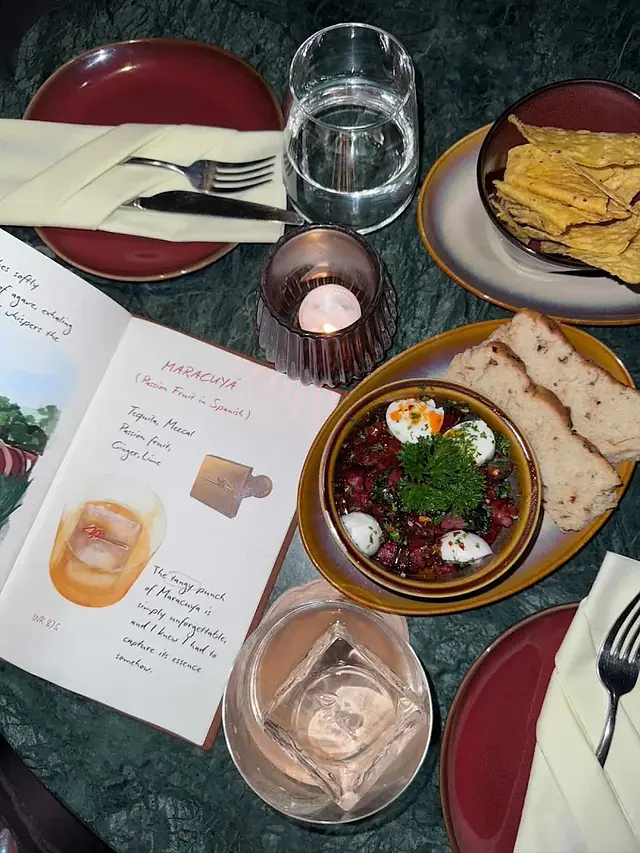 softly
of agave, exhaling
whispers the
MARACUYÁ
(Passion Fruit in Spanish)
Tequila, Mezcal
Passion fruit,
Ginger, Lime
The tangy punch
of Maracuya is
simply unforgettable,
and I knew I had to
capture its essence
somehow.
INR 875